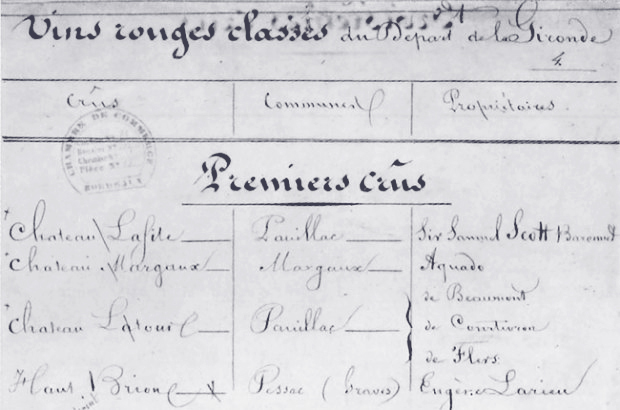 Vins rouges classés du Départt de la Gironde
4.
Crûs Communes Propriétaires.
CHAMBRE DE COMMERCE
BORDEAUX
Premiers crûs
Chateau Lafite Pauillac Sir Samuel Scott Baronnet
Chateau Margaux Margaux Aguado
de Beaumont
Chateau Latour Pauillac de Courtivron
de Flers
Haut Brion Pessac (Graves) Eugène Larieu